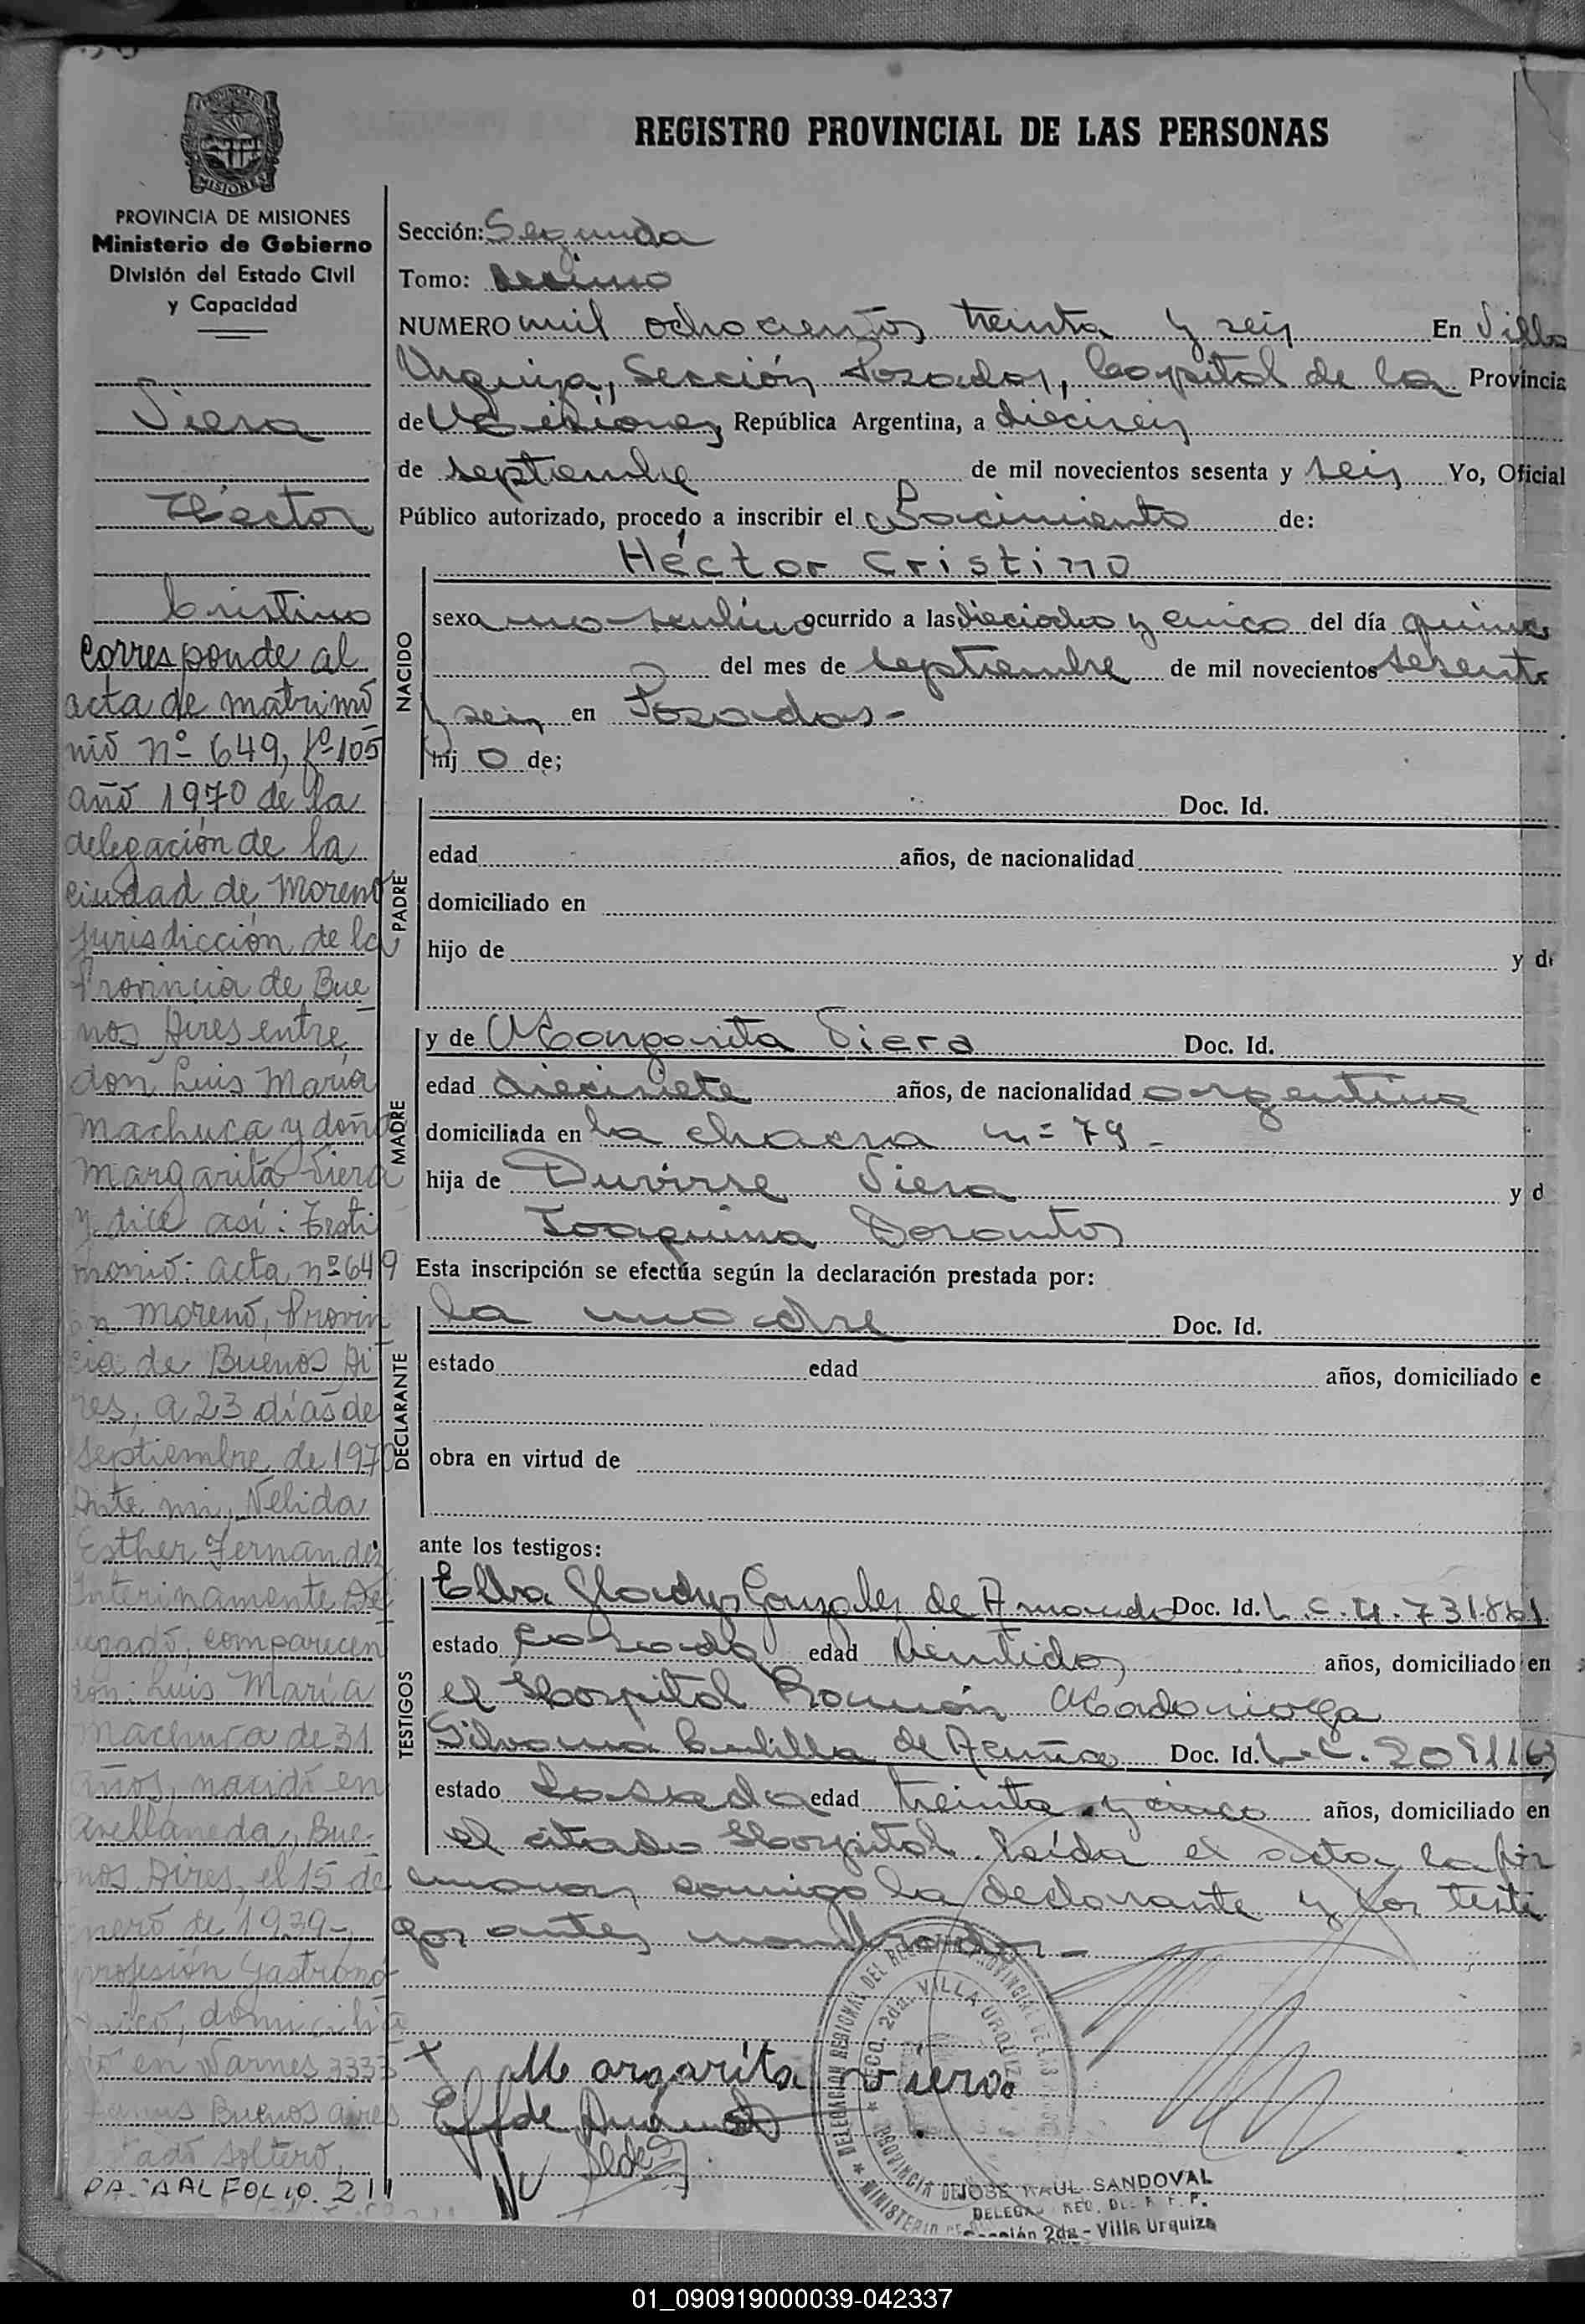 REGISTRO PROVINCIAL DE LAS PERSONAS
PROVINCIA DE MISIONES
MISIONES
PROVINCIA DE MISIONES
Ministerio de Gobierno
División del Estado Civil
y Capacidad
Viera
Héctor
Cristino
Corresponde al
acta de matrimo
nio nº 649, fº 105
año 1970 de la
delegación de la
ciudad de Moreno
jurisdicción de la
Provincia de Bue
nos Aires entre
don Luis María
Machuca y doña
Margarita Viera
y dice así: Testi
monio: acta nº 649
En Moreno, Provin
cia de Buenos Ai
res, a 23 días de
septiembre de 1970
Ante mi, Nélida
Esther Fernandez
Interinamente De
legado, comparecen
don: Luis María
Machuca de 31
años, nacido en
Avellaneda, Bue
nos Aires, el 15 de
enero de 1939-
profesión Gastronó
mico, domicilia
do en Warnes 3333
Buenos Aires
estado soltero,
PASA AL FOLIO 211
Sección: Segunda
Tomo: decimo
NUMERO mil ochocientos treinta y seis En Villa
Urquiza, Sección Posadas, Capital de la Provincia
de Misiones República Argentina, a dieciseis
de septiembre de mil novecientos sesenta y seis Yo, Oficial
Público autorizado, procedo a inscribir el Nacimiento de:
NACIDO
Héctor Cristino
sexo masculino ocurrido a las dieciocho y cinco del día quince
del mes de septiembre de mil novecientos sesenta
y seis en Posadas-
hij o de;
PADRE
Doc. Id.
edad años, de nacionalidad
domiciliado en
hijo de y de
MADRE
y de Margarita Viera Doc. Id.
edad diecisiete años, de nacionalidad argentina
domiciliada en la chacra nº 79-
hija de Duvirse Viera y d
Joaquina Dorantos
Esta inscripción se efectúa según la declaración prestada por:
DECLARANTE
la madre Doc. Id.
estado edad años, domiciliado e
obra en virtud de
ante los testigos:
TESTIGOS
Elba Gladys Gonzalez de Amarado Doc. Id. L.C. 4.731.861
estado casada edad veintidos años, domiciliado en
el Hospital Ramón Madariaga
Silvana Cubilla de Acuña Doc. Id. L.C. 2091163
estado casada edad treinta y cinco años, domiciliado en
el citado Hospital. Leída el acta, la fir
maron, conmigo la declarante y los testi
gos antes nombrados-
x Margarita Viera
DELEGACION REGIONAL DEL REGISTRO PROVINCIAL DE LAS
SECC. 2da. VILLA URQUIZA
PROVINCIA DE
MINISTERIO DE
JOSE RAUL SANDOVAL
DELEGADO REG. DEL R. P. P.
Sección 2da - Villa Urquiza
01_090919000039-042337